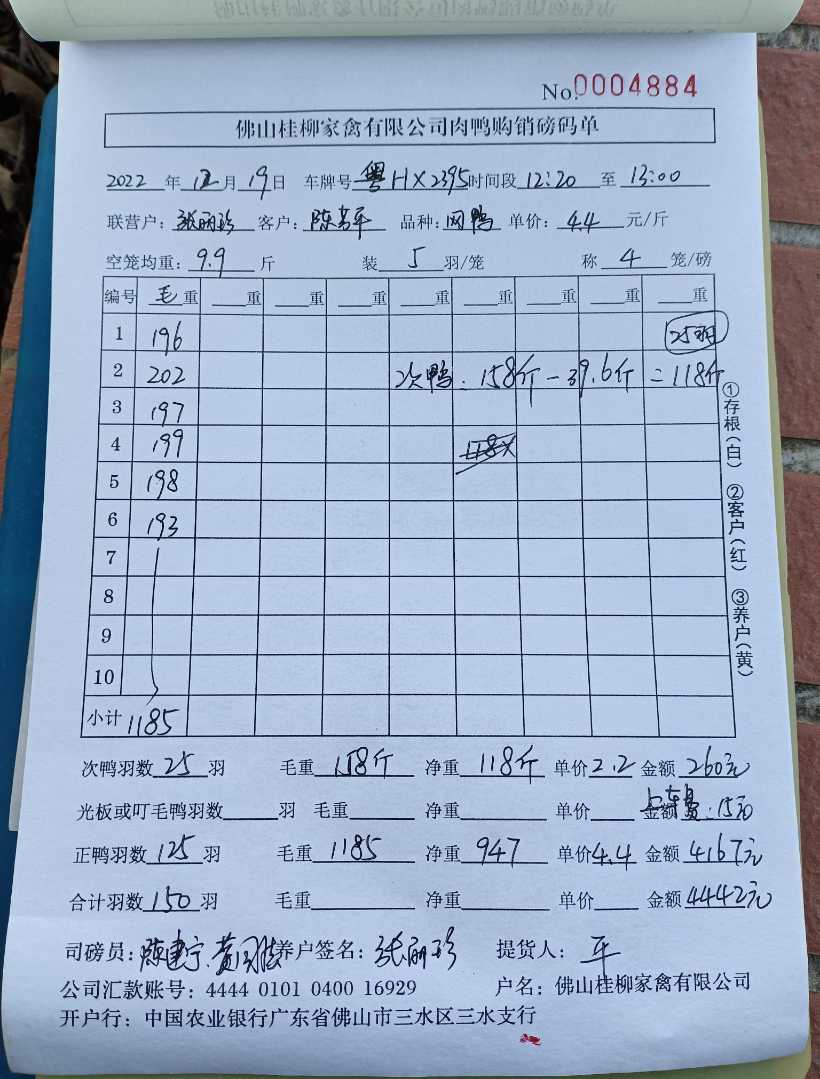 No.0004884
佛山桂柳家禽有限公司肉鸭购销磅码单
2022年12月19日 车牌号粤HX2395时间段12:20至13:00
联营户:张丽珍 客户:陈芳平 品种:网鸭 单价:4.4元/斤
空笼均重:9.9斤 装5羽/笼 称4笼/磅
编号 毛重 重 重 重 重 重 重 重 重
1 196 25羽
2 202 次鸭:158斤-39.6斤=118斤
3 197
4 199
5 198
6 193
7
8
9
10
小计 1185
①存根(白) ②客户(红) ③养户(黄)
次鸭羽数25羽 毛重158斤 净重118斤 单价2.2 金额260元
光板或叮毛鸭羽数 羽 毛重 净重 单价 金额 上车费:15元
正鸭羽数125羽 毛重1185 净重947 单价4.4 金额4167元
合计羽数150羽 毛重 净重 单价 金额4442元
司磅员:陈建宁、黄 养户签名:张丽珍 提货人:平
公司汇款账号:4444 0101 0400 16929 户名:佛山桂柳家禽有限公司
开户行:中国农业银行广东省佛山市三水区三水支行